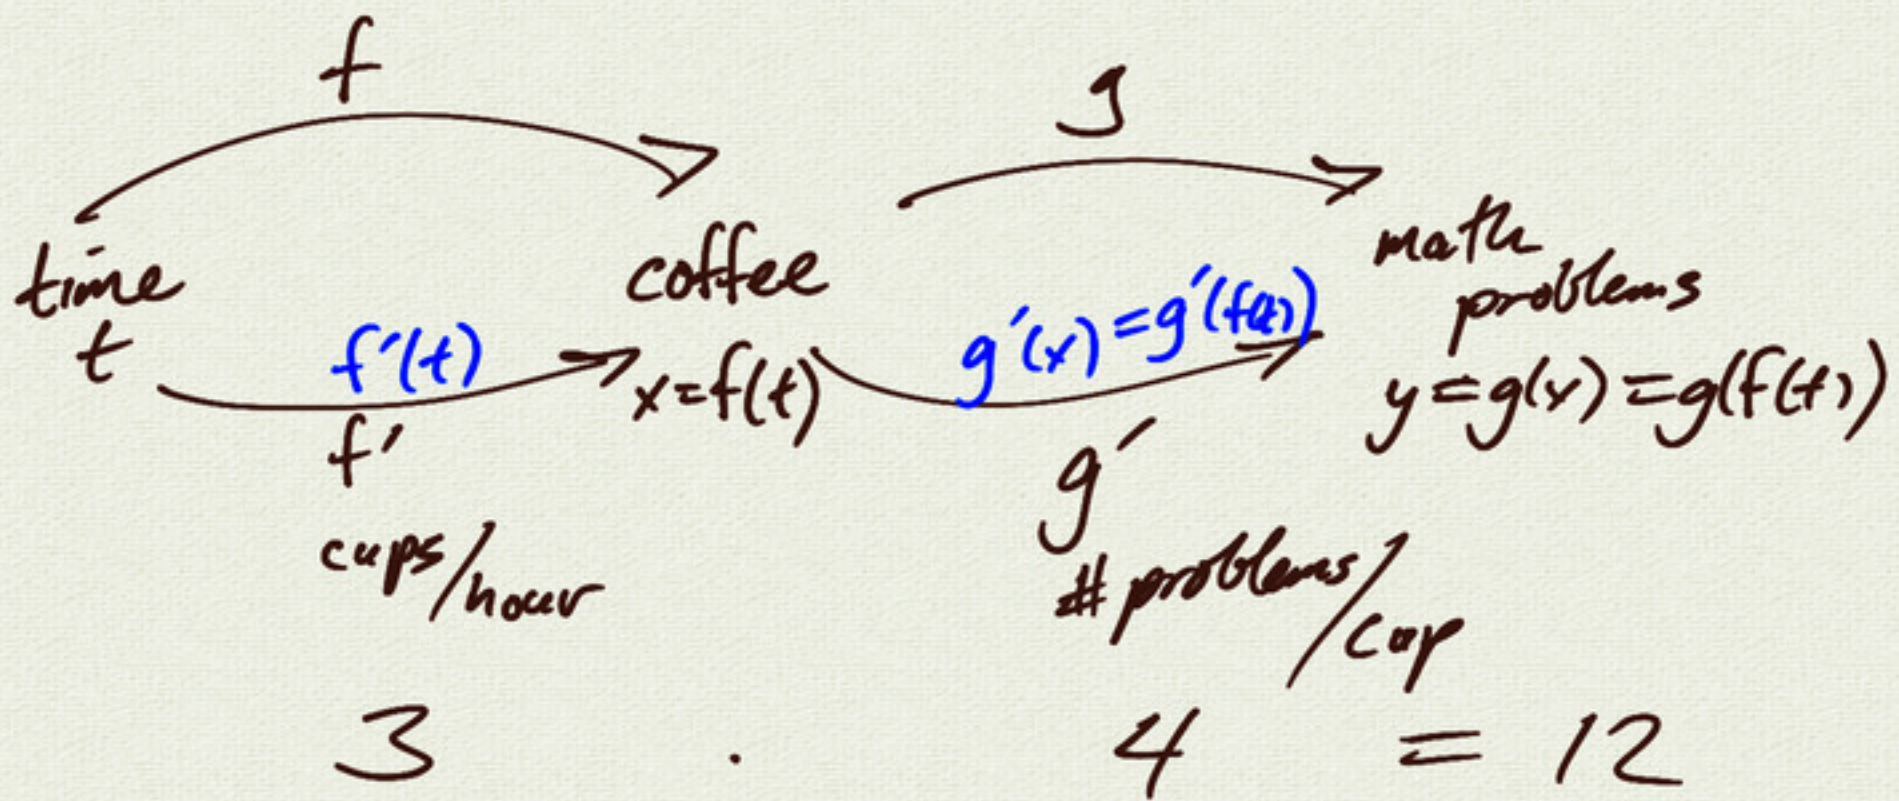 f
g
time
t
coffee
x=f(t)
math
problems
y=g(x)=g(f(t))
f'(t)
g'(x)=g'(f(t))
f'
g'
cups/hour
# problems/cup
3 · 4 = 12